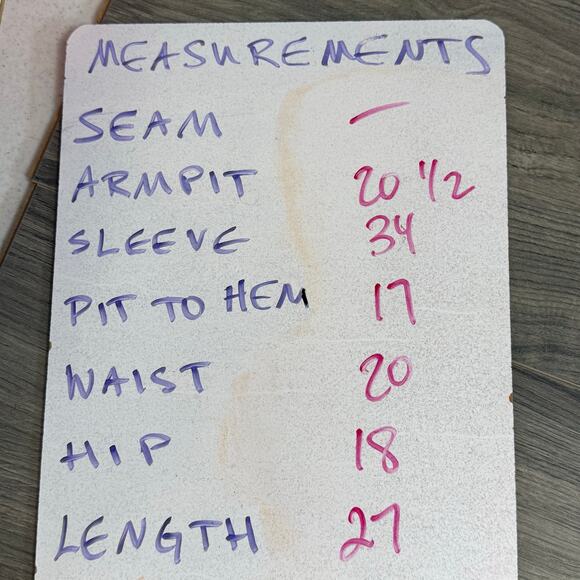 MEASUREMENTS
SEAM —
ARMPIT 20 1/2
SLEEVE 34
PIT TO HEM 17
WAIST 20
HIP 18
LENGTH 27